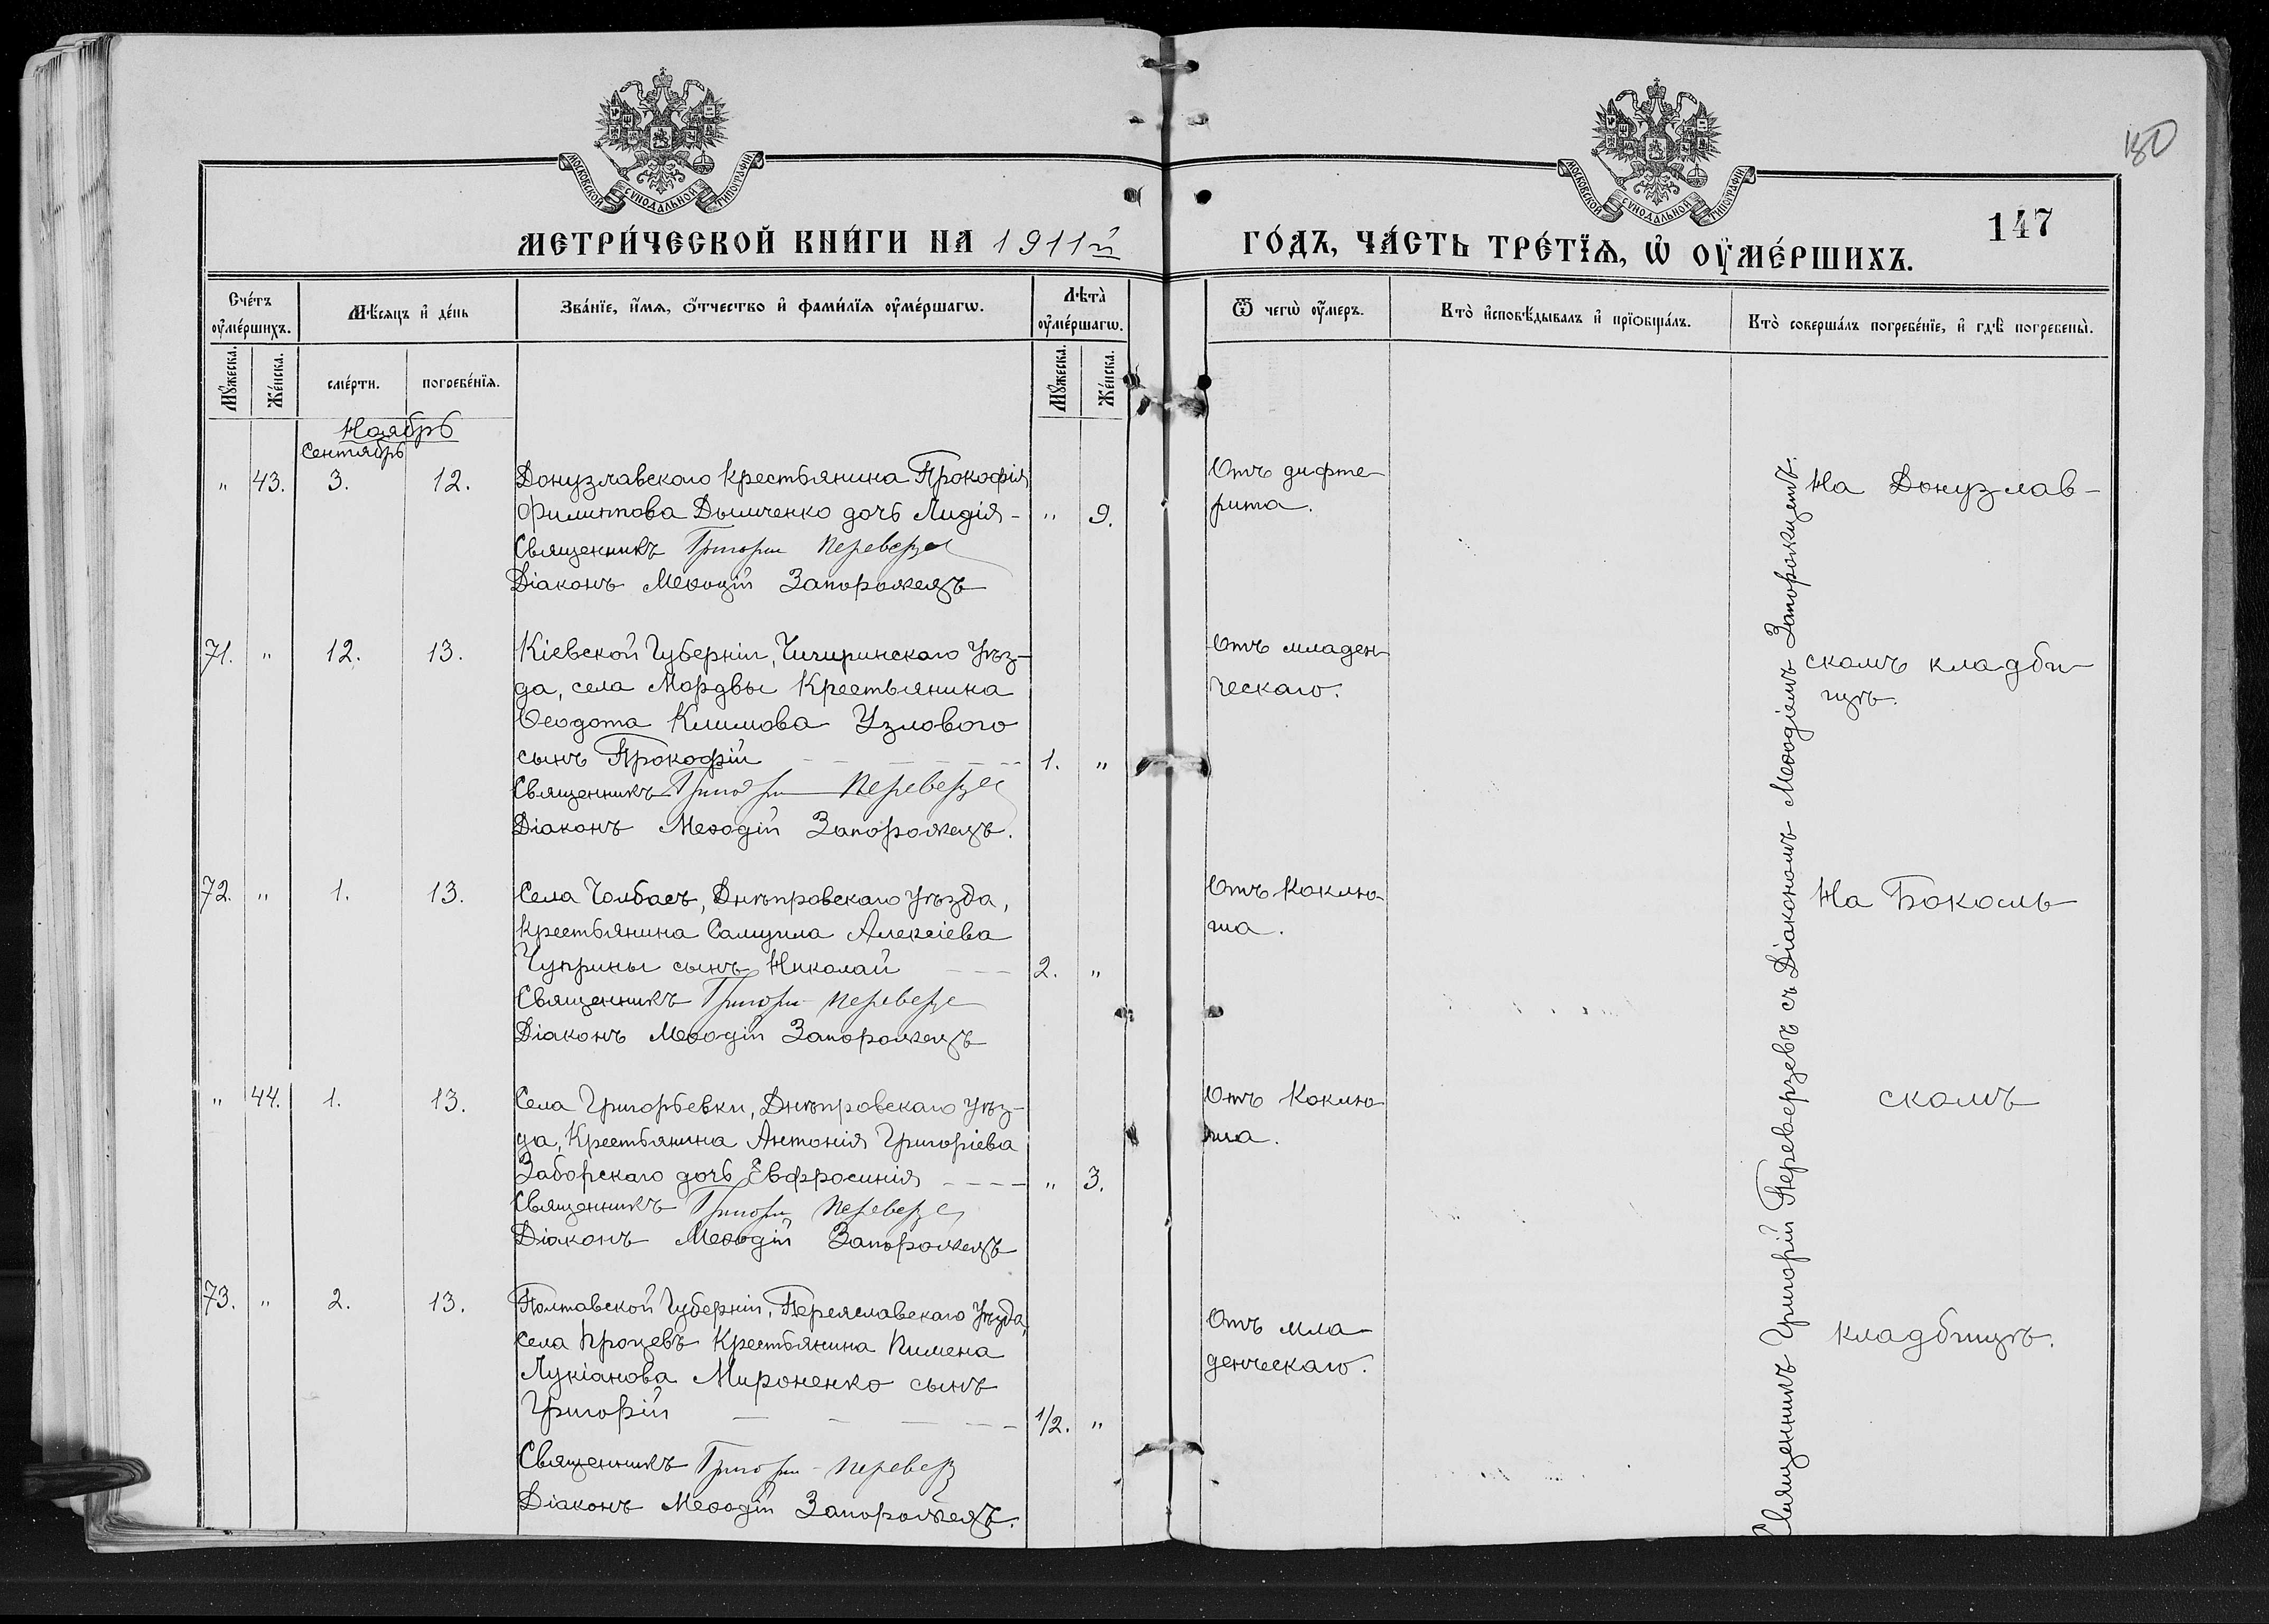 МОСКОВСКОЙ СѴНОДАЛЬНОЙ ТИПОГРАФІИ
МОСКОВСКОЙ СѴНОДАЛЬНОЙ ТИПОГРАФІИ
180
147
МЕТРИ́ЧЕСКОЙ КНИ́ГИ НА 1911й
ГО́ДЪ, ЧА́СТЬ ТРЕ́ТЇѦ, Ѡ҆ ОУ҆МЕ́РШИХЪ.
Сче́тъ оу҆ме́ршихъ.
Мѣ́сяцъ и҆ де́нь
Зва́нїе, и҆́мѧ, ѻ҆́тчество и҆ фами́лїѧ оу҆ме́ршагѡ.
Лѣта̀ оу҆ме́ршагѡ.
Ѿ чегѡ̀ оу҆́меръ.
Кто̀ и҆сповѣ́дывалъ и҆ прїѻбща́лъ.
Кто̀ соверша́лъ погребе́нїе, и҆ гдѣ̀ погребены̀.
Мꙋ́жеска.
Же́нска.
сме́рти.
погребе́нїѧ.
Мꙋ́жеска.
Же́нска.
Ноябрь
Сентябрь
" 43. 3. 12. Донузлавскаго крестьянина Прокофія
Филиппова Дымченко дочь Лидія - " 9.
Священникъ Григорій Переверзев
Діаконъ Меѳодій Запорожецъ
Отъ дифте-
рита.
На Донузлав-
71. " 12. 13. Кіевской Губерніи, Чигиринскаго Уѣз-
да, села Мордвы Крестьянина
Ѳеодота Климова Узлового
сынъ Прокофій - - - - - - 1. "
Священникъ Григорій Переверзев
Діаконъ Меѳодій Запорожецъ.
Отъ младен-
ческаго.
скомъ кладби-
щѣ.
72. " 1. 13. Села Чолбасъ, Днѣпровскаго Уѣзда,
Крестьянина Самуила Алексіева
Чуприны сынъ Николай - - - 2. "
Священникъ Григорій Переверзе
Діаконъ Меѳодій Запорожецъ
Отъ Коклю-
ша.
На Бокаль
" 44. 1. 13. Села Григорьевки, Днѣпровскаго Уѣз-
да, Крестьянина Антонія Григоріева
Заборскаго дочь Евфросинія - - - - " 3.
Священникъ Григорій Переверзе
Діаконъ Меѳодій Запорожецъ
Отъ Коклю-
ша.
скомъ
73. " 2. 13. Полтавской Губерніи, Переяславскаго Уѣзда,
Села Процевъ Крестьянина Пимена
Лукіанова Мироненко сынъ
Григорій - - - - - 1/2. "
Священникъ Григорій Переверз
Діаконъ Меѳодій Запорожецъ.
Отъ мла-
денческаго.
кладбищѣ.
Священникъ Григорій Переверзевъ съ Діакономъ Меѳодіемъ Запорожцемъ.